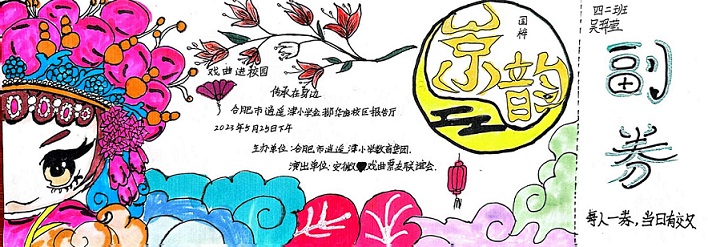 国粹
京韵
戏曲进校园
传承在身边
合肥市逍遥津小学金都华庭校区报告厅
2023年5月25日下午
主办单位:合肥市逍遥津小学教育集团.
演出单位:安徽戏曲京友联谊会.
四二班
副券
每人一券,当日有效